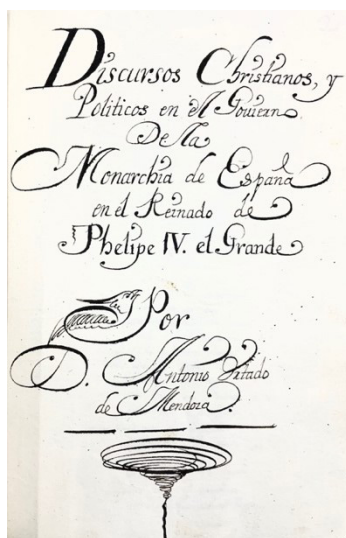 Discursos Christianos, y
Politicos en el Gouierno
De la
Monarchia de España
en el Reinado de
Phelipe IV. el Grande
Por
D. Antonio Vrtado
de Mendoza.